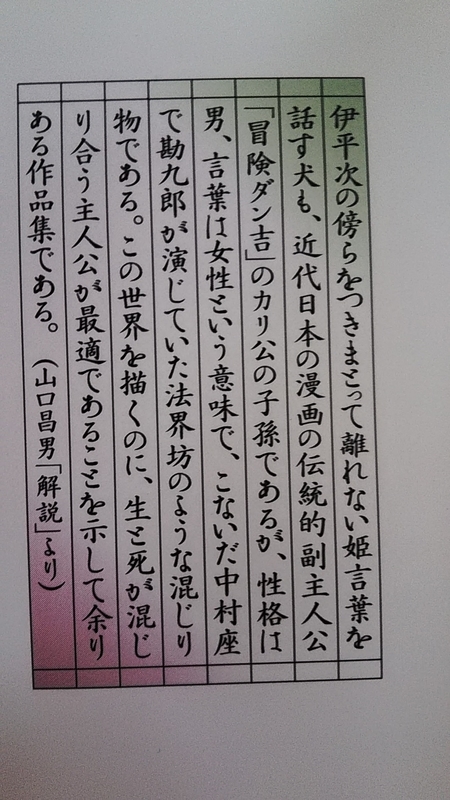 伊平次の傍らをつきまとって離れない姫言葉を
話す犬も、近代日本の漫画の伝統的副主人公
「冒険ダン吉」のカリ公の子孫であるが、性格は
男、言葉は女性という意味で、こないだ中村座
で勘九郎が演じていた法界坊のような混じり
物である。この世界を描くのに、生と死が混じ
り合う主人公が最適であることを示して余り
ある作品集である。（山口昌男「解説」より）